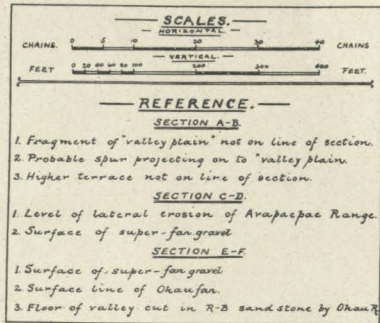 SCALES.
HORIZONTAL
CHAINS. 0 5 10 20 30 40 CHAINS
VERTICAL.
FEET 0 20 40 60 80 100 200 300 400 FEET.
REFERENCE.
SECTION A-B.
1. Fragment of "valley plain" not on line of section.
2. Probable spur projecting on to "valley plain.
3. Higher terrace not on line of section.
SECTION C-D.
1. Level of lateral erosion of Arapaepae Range.
2. Surface of super-fan gravel
SECTION E-F.
1. Surface of super-fan gravel
2. Surface line of Ohau fan.
3. Floor of valley cut in R-B sandstone by Ohau R.